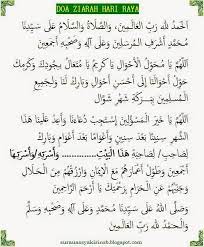 DOA ZIARAH HARI RAYA
الحمد لله رب العالمين، والصلاة والسلام على سيدنا
محمد أشرف المرسلين وعلى آله وصحبه أجمعين
اللهم يا محول الأحوال يا كريم يا متعال بجودك وكرمك
حول أحوالنا إلى أحسن حال وبارك لنا ولجميع
المسلمين ببركة شهر شوال
اللهم يا خير المرسلين
الشهر سنينا بعد سنين وأعواما بعد أعوام وبارك
لصاحب/ لصاحبة هذا البيت وأسرته/وأسرتها
وطول أعمارهم مع الإيمان وارزقهم رزقا حلالا
وأغنهم عن الحرام برحمتك يا أرحم الراحمين
وصلى الله على سيدنا محمد وعلى آله وصحبه وسلم
والحمد لله رب العالمين
suraunasyakirinsb.blogspot.com